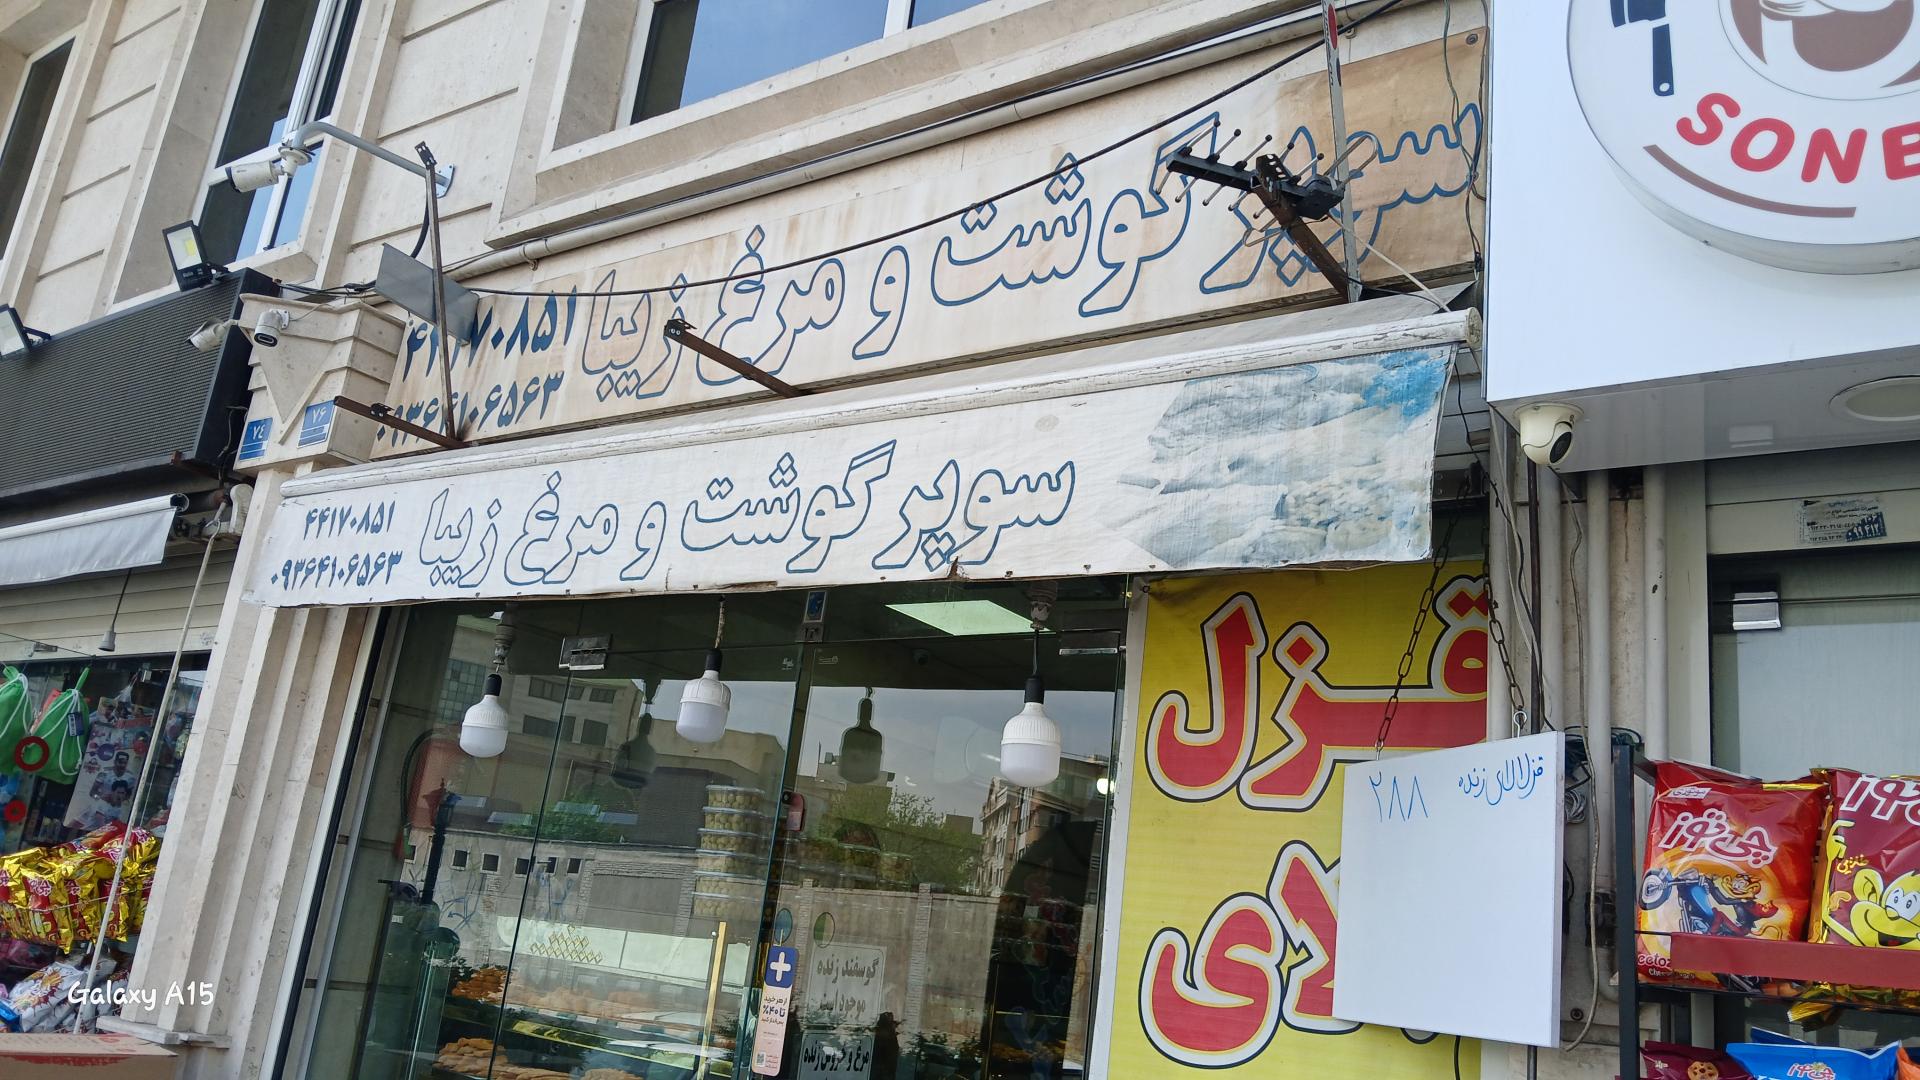 سوپر گوشت و مرغ زیبا
۴۴۱۷۰۸۵۱
۰۹۳۶۴۱۰۶۵۶۳
سوپر گوشت و مرغ زیبا
۴۴۱۷۰۸۵۱
۰۹۳۶۴۱۰۶۵۶۳
۷۴
۷۶
SONE
قزل
قزلالای زنده
۲۸۸
گوسفند زنده
موجود است
مرغ و خروس زنده
از هر خرید
تا ۴۰%
چی توز
چی توز
Galaxy A15